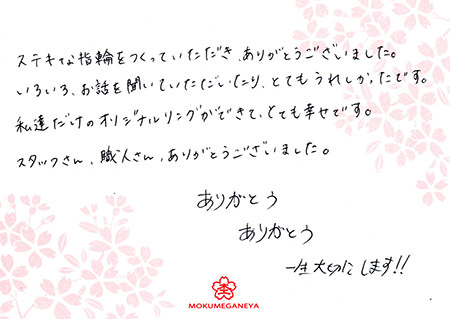 ステキな指輪をつくっていただき、ありがとうございました。
いろいろ、お話を聞いていただいたり、とてもうれしかったです。
私達だけのオリジナルリングができて、とても幸せです。
スタッフさん、職人さん、ありがとうございました。
ありがとう
ありがとう
一生大切にします!!
MOKUMEGANEYA